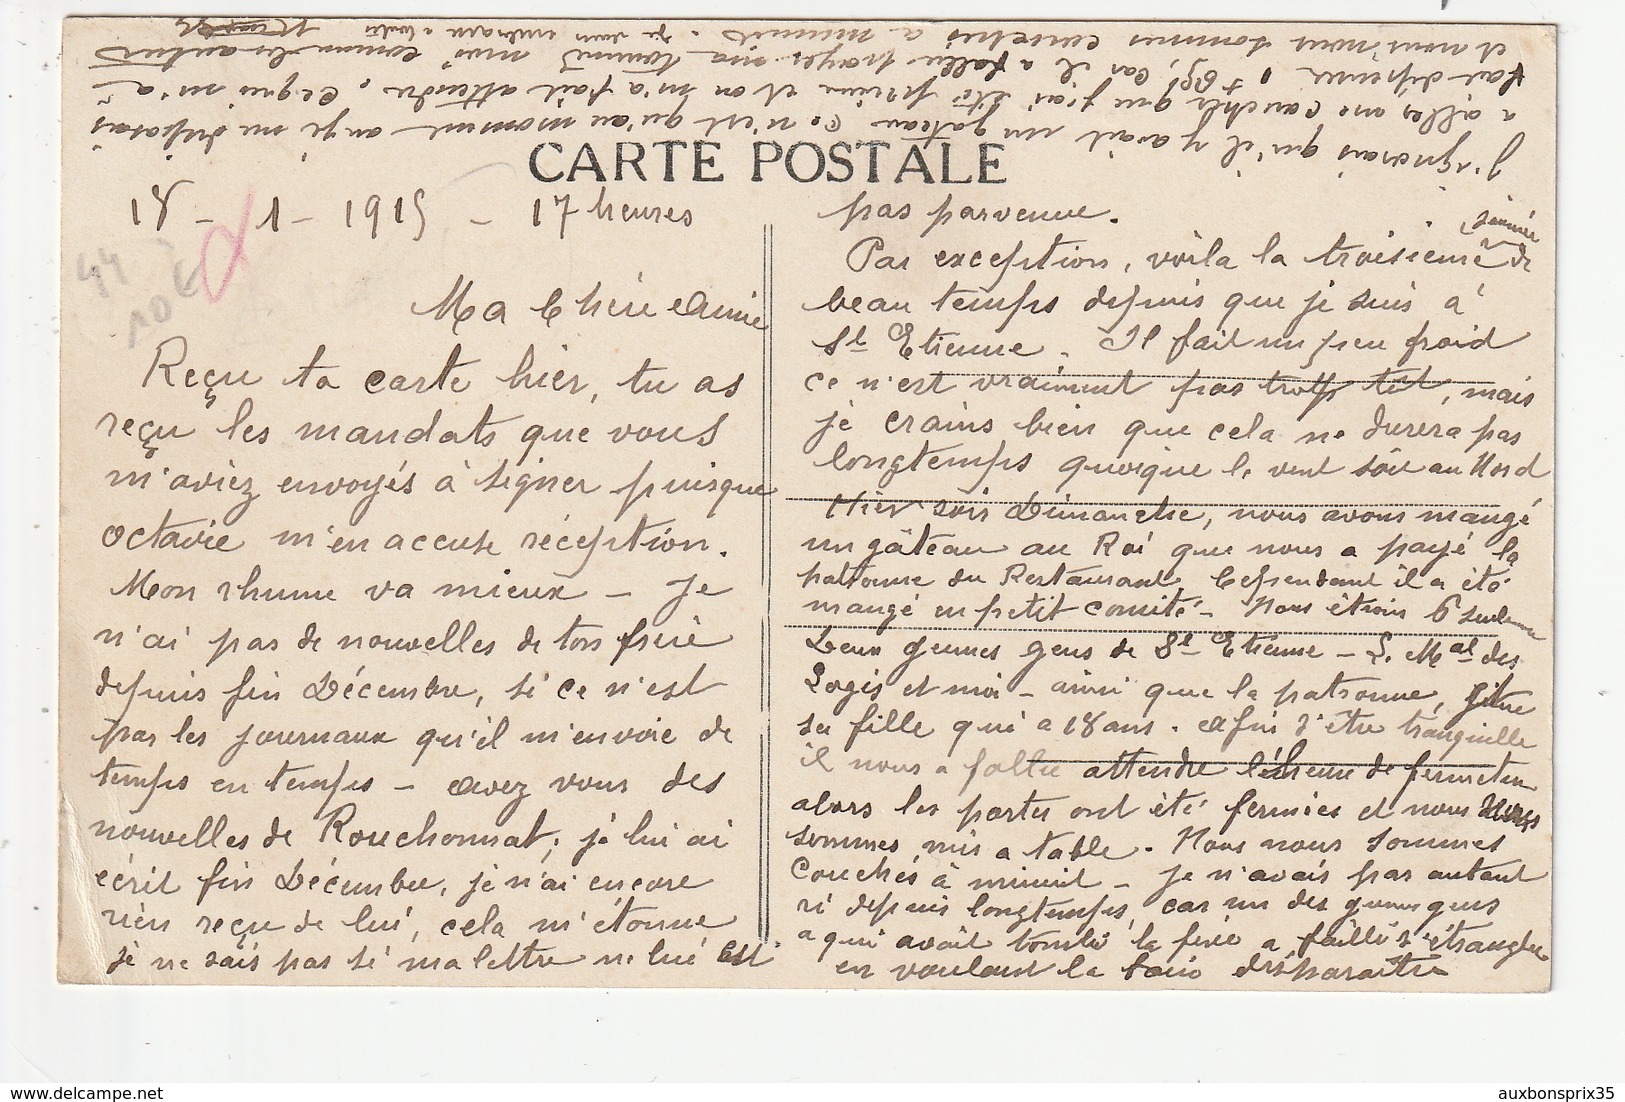 CARTE POSTALE
18 - 1 - 1915 - 17 heures
Ma Chère Amie
Reçu ta carte hier, tu as
reçu les mandats que vous
m'aviez envoyés à signer puisque
Octavie m'en accuse réception.
Mon rhume va mieux - Je
n'ai pas de nouvelles de ton frère
depuis fin Décembre, si ce n'est
par les journaux qu'il m'envoie de
temps en temps - Avez vous des
nouvelles de Rouchonnat; je lui ai
écrit fin Décembre, je n'ai encore
rien reçu de lui, cela m'étonne
je ne sais pas si ma lettre ne lui est
pas parvenue.
Par exception, voila la troisième journée de
beau temps depuis que je suis à
St Etienne. Il fait un peu froid
ce n'est vraiment pas trop tôt, mais
je crains bien que cela ne durera pas
longtemps quoique le vent soit au Nord
Hier soir Dimanche, nous avons mangé
un gâteau au Roi que nous a payé la
patronne du Restaurant. Cependant il a été
mangé en petit comité - Nous étions 6 seulement
Deux jeunes gens de St Etienne - L. Mal des
Logis et moi - ainsi que la patronne,
sa fille qui a 18 ans. Afin d'être tranquille
il nous a fallu attendre l'heure de fermeture
alors les portes ont été fermées et nous nous
sommes mis a table. Nous nous sommes
couchés à minuit - Je n'avais pas autant
ri depuis longtemps, car un des jeunes gens
a qui avait tombé la fève a failli s'étrangler
en voulant la faire disparaître
J'ignorais qu'il y avait un gateau Ce n'est qu'au moment ou je me disposais
a aller me coucher que j'ai été prévenu et on m'a fait attendre, ce qui m'a
fait dépenser 1f 95, Car il a fallu payer sa tournée moi comme les autres
et nous nous sommes couchés a minuit. Je vous embrasse a toutes